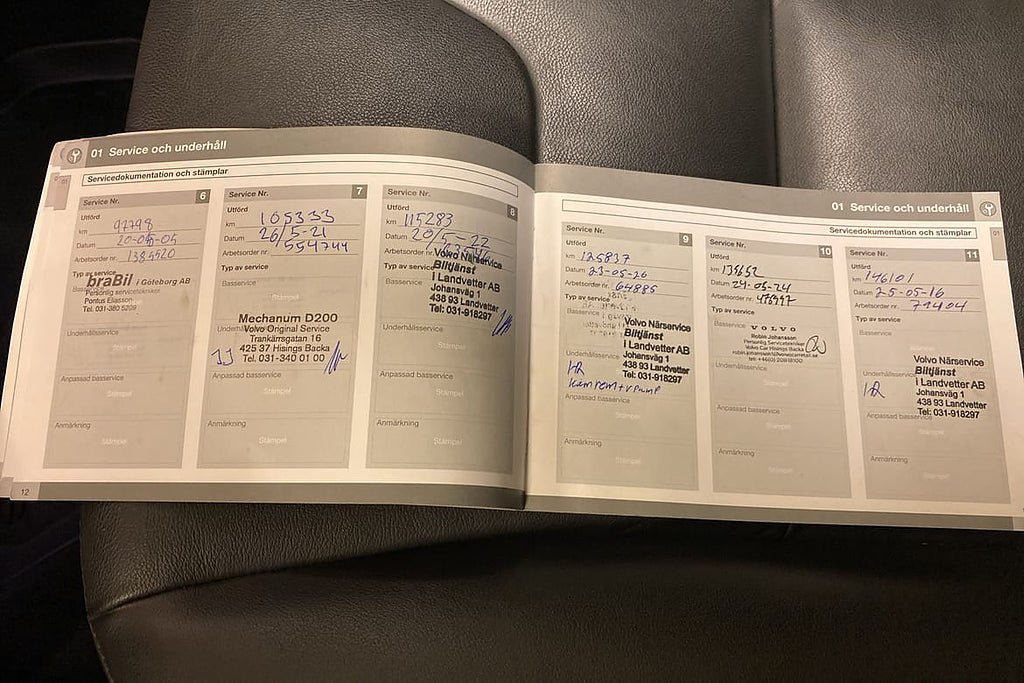 01 Service och underhåll
Servicedokumentation och stämplar
Service Nr. 6
Utförd
km 97798
Datum 20-05-05
Arbetsorder nr. 1385520
Typ av service
braBil i Göteborg AB
Personlig servicetekniker
Pontus Eliasson
Tel. 031-380 5209
Underhållsservice
Stämpel
Anpassad basservice
Stämpel
Anmärkning
Stämpel
12
Service Nr. 7
Utförd
km 105333
Datum 26/5-21
Arbetsorder nr. 554744
Typ av service
Basservice
Stämpel
Mechanum D200
Volvo Original Service
Trankärrsgatan 16
425 37 Hisings Backa
Tel. 031-340 01 00
Anpassad basservice
Stämpel
Anmärkning
Stämpel
Service Nr. 8
Utförd
km 115283
Datum 20/5-22
Arbetsorder nr.
Typ av service
Volvo Närservice
Basservice
Biltjänst
i Landvetter AB
Johansväg 1
438 93 Landvetter
Tel: 031-918297
Underhållsservice
Anpassad basservice
Stämpel
Anmärkning
Stämpel
01 Service och underhåll
Servicedokumentation och stämplar
01
Service Nr. 9
Utförd
km 125837
Datum 23-05-26
Arbetsorder nr. 64885
Typ av service
Basservice
Volvo Närservice
Biltjänst
i Landvetter AB
Johansväg 1
438 93 Landvetter
Tel: 031-918297
Underhållsservice
kamrem + v pump
Anpassad basservice
Stämpel
Anmärkning
Stämpel
Service Nr. 10
Utförd
km 134652
Datum 24-05-24
Arbetsorder nr.
Typ av service
Basservice
VOLVO
Robin Johansson
Personlig Servicetekniker
Volvo Car Hisings Backa
Underhållsservice
Stämpel
Anpassad basservice
Stämpel
Anmärkning
Stämpel
Service Nr. 11
Utförd
km 146101
Datum 25-05-16
Arbetsorder nr. 71404
Typ av service
Basservice
Volvo Närservice
Biltjänst
i Landvetter AB
Johansväg 1
438 93 Landvetter
Tel: 031-918297
Underhållsservice
Anpassad basservice
Stämpel
Anmärkning
Stämpel